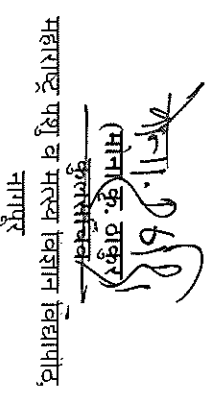 (मोना कु. ठाकुर)
कुलसचिव
महाराष्ट्र पशु व मत्स्य विज्ञान विद्यापीठ,
नागपूर